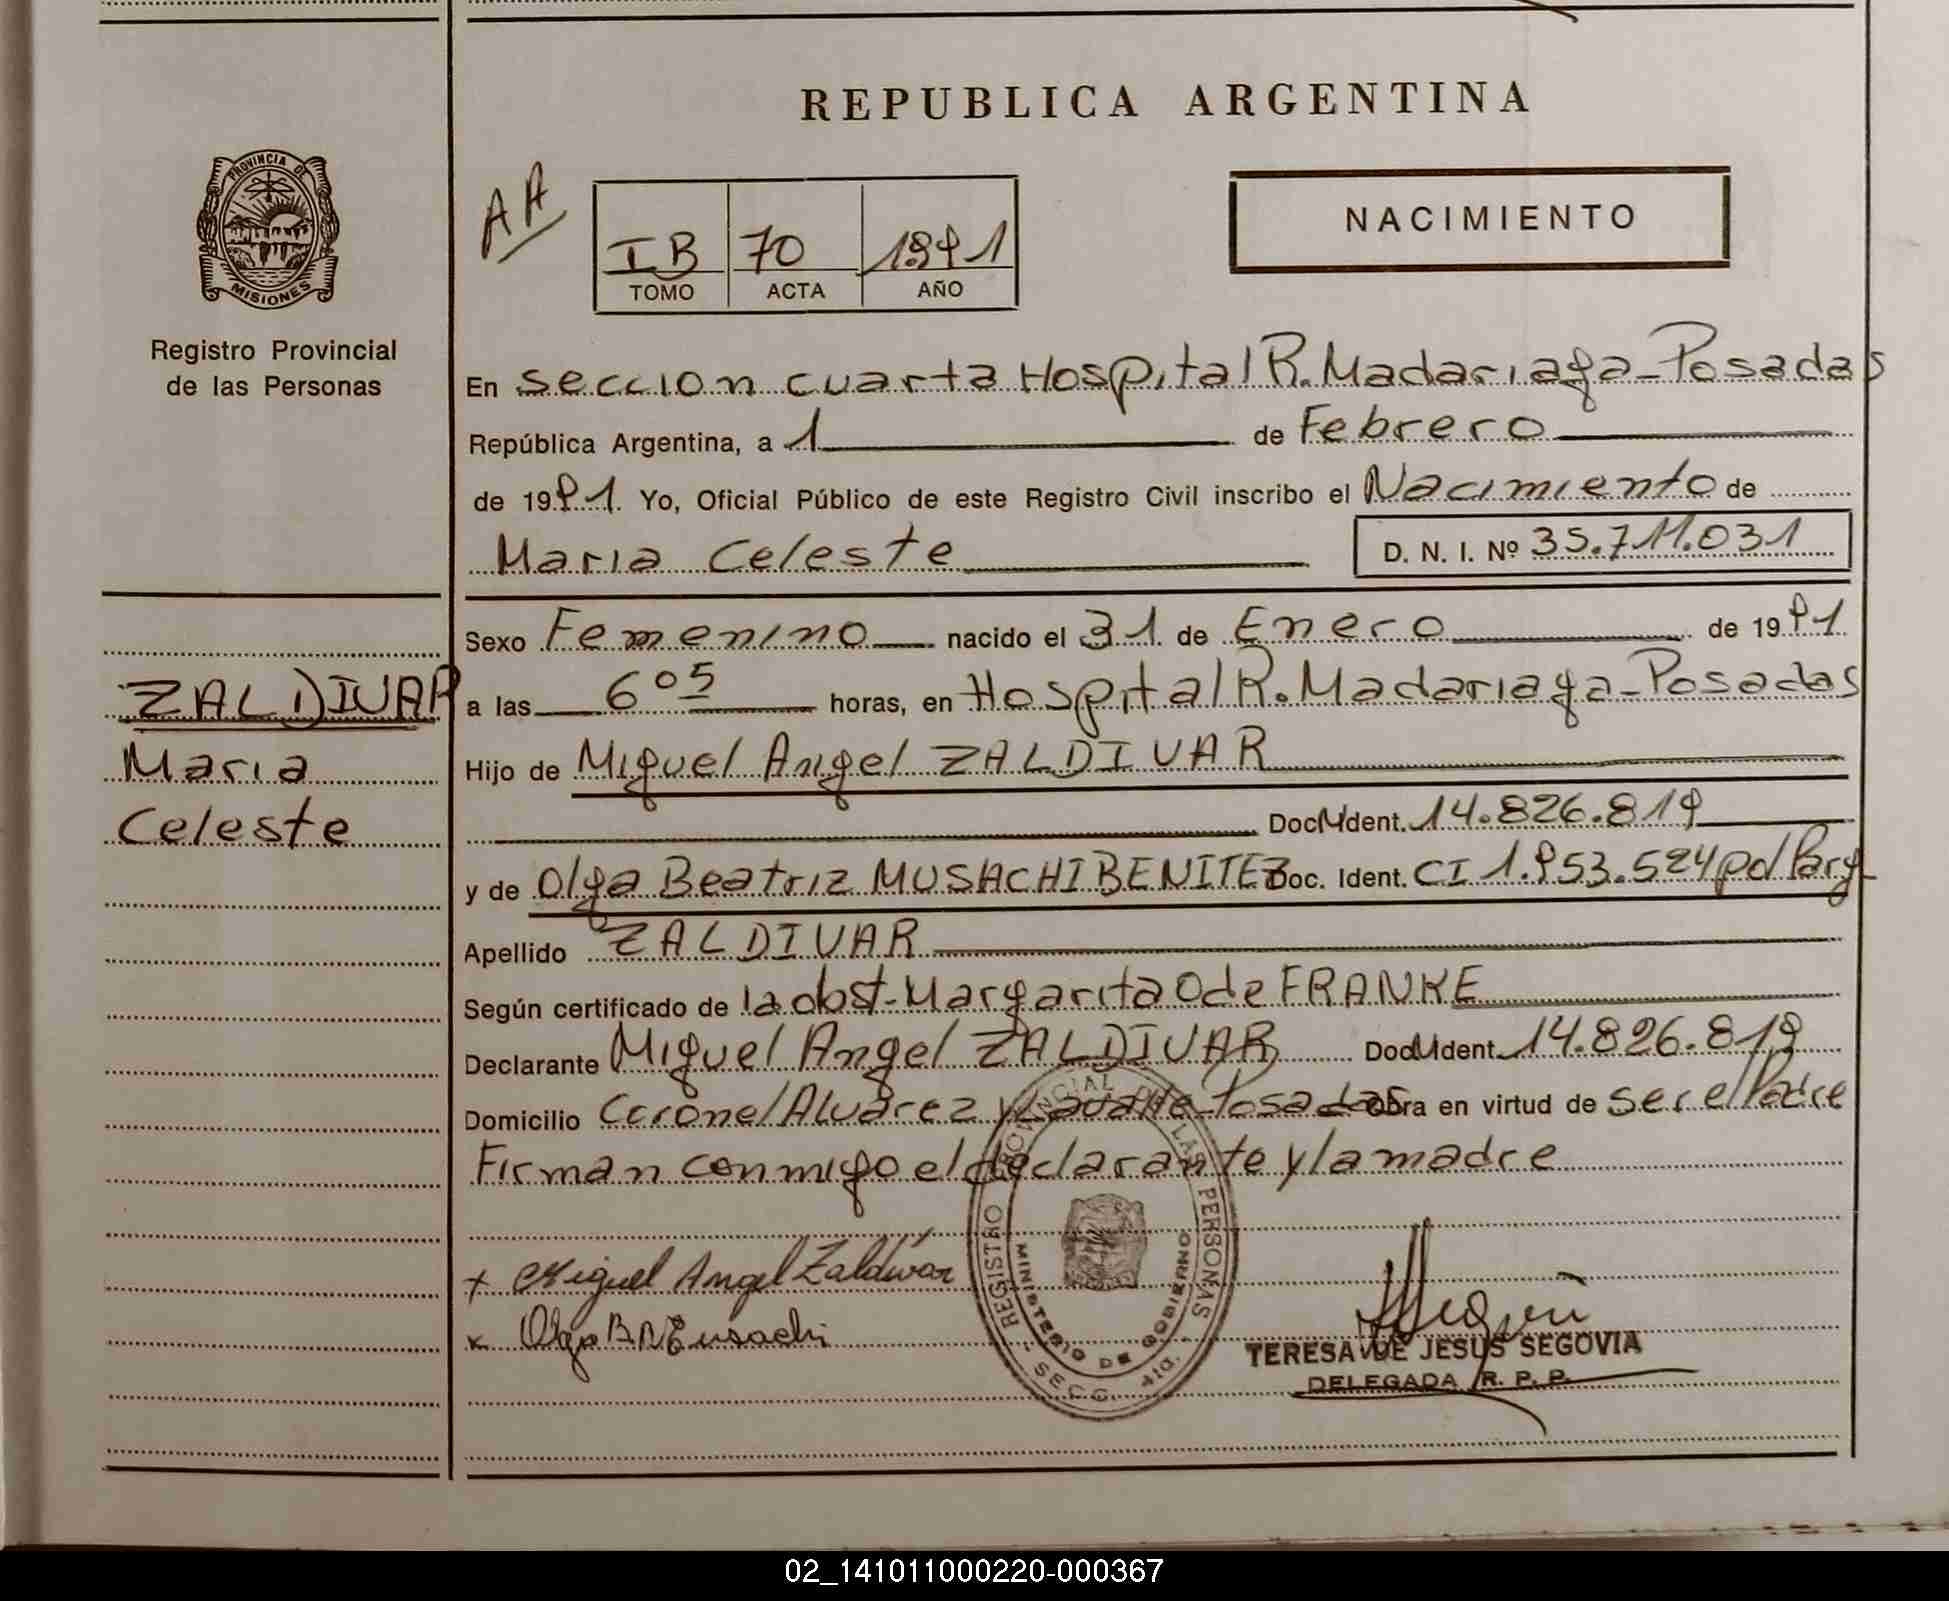 REPUBLICA ARGENTINA
PROVINCIA DE
MISIONES
Registro Provincial
de las Personas
AA
IB 70 1991
TOMO ACTA AÑO
NACIMIENTO
En seccion cuarta Hospital R. Madariaga - Posadas
República Argentina, a 1 de Febrero
de 1991. Yo, Oficial Público de este Registro Civil inscribo el Nacimiento de
Maria Celeste
D. N. I. Nº 35.711.031
Sexo Femenino nacido el 31 de Enero de 1991
a las 6 05 horas, en Hospital R. Madariaga - Posadas
Hijo de Miguel Angel ZALDIVAR
Doc. Ident. 14.826.819
y de Olga Beatriz MUSACHI BENITEZ Doc. Ident. CI 1.953.524 pol Parg
Apellido ZALDIVAR
Según certificado de la obst. Margarita O de FRANKE
Declarante Miguel Angel ZALDIVAR Doc. Ident. 14.826.819
Domicilio Coronel Alvarez y Lavalle - Posadas Obra en virtud de ser el Padre
Firman conmigo el declarante y la madre
ZALDIVAR
Maria
Celeste
x Miguel Angel Zaldivar
x Olga B
REGISTRO PROVINCIAL DE LAS PERSONAS
MINISTERIO DE GOBIERNO
SECC. 4ta.
TERESA DE JESUS SEGOVIA
DELEGADA R. P. P.
02_141011000220-000367